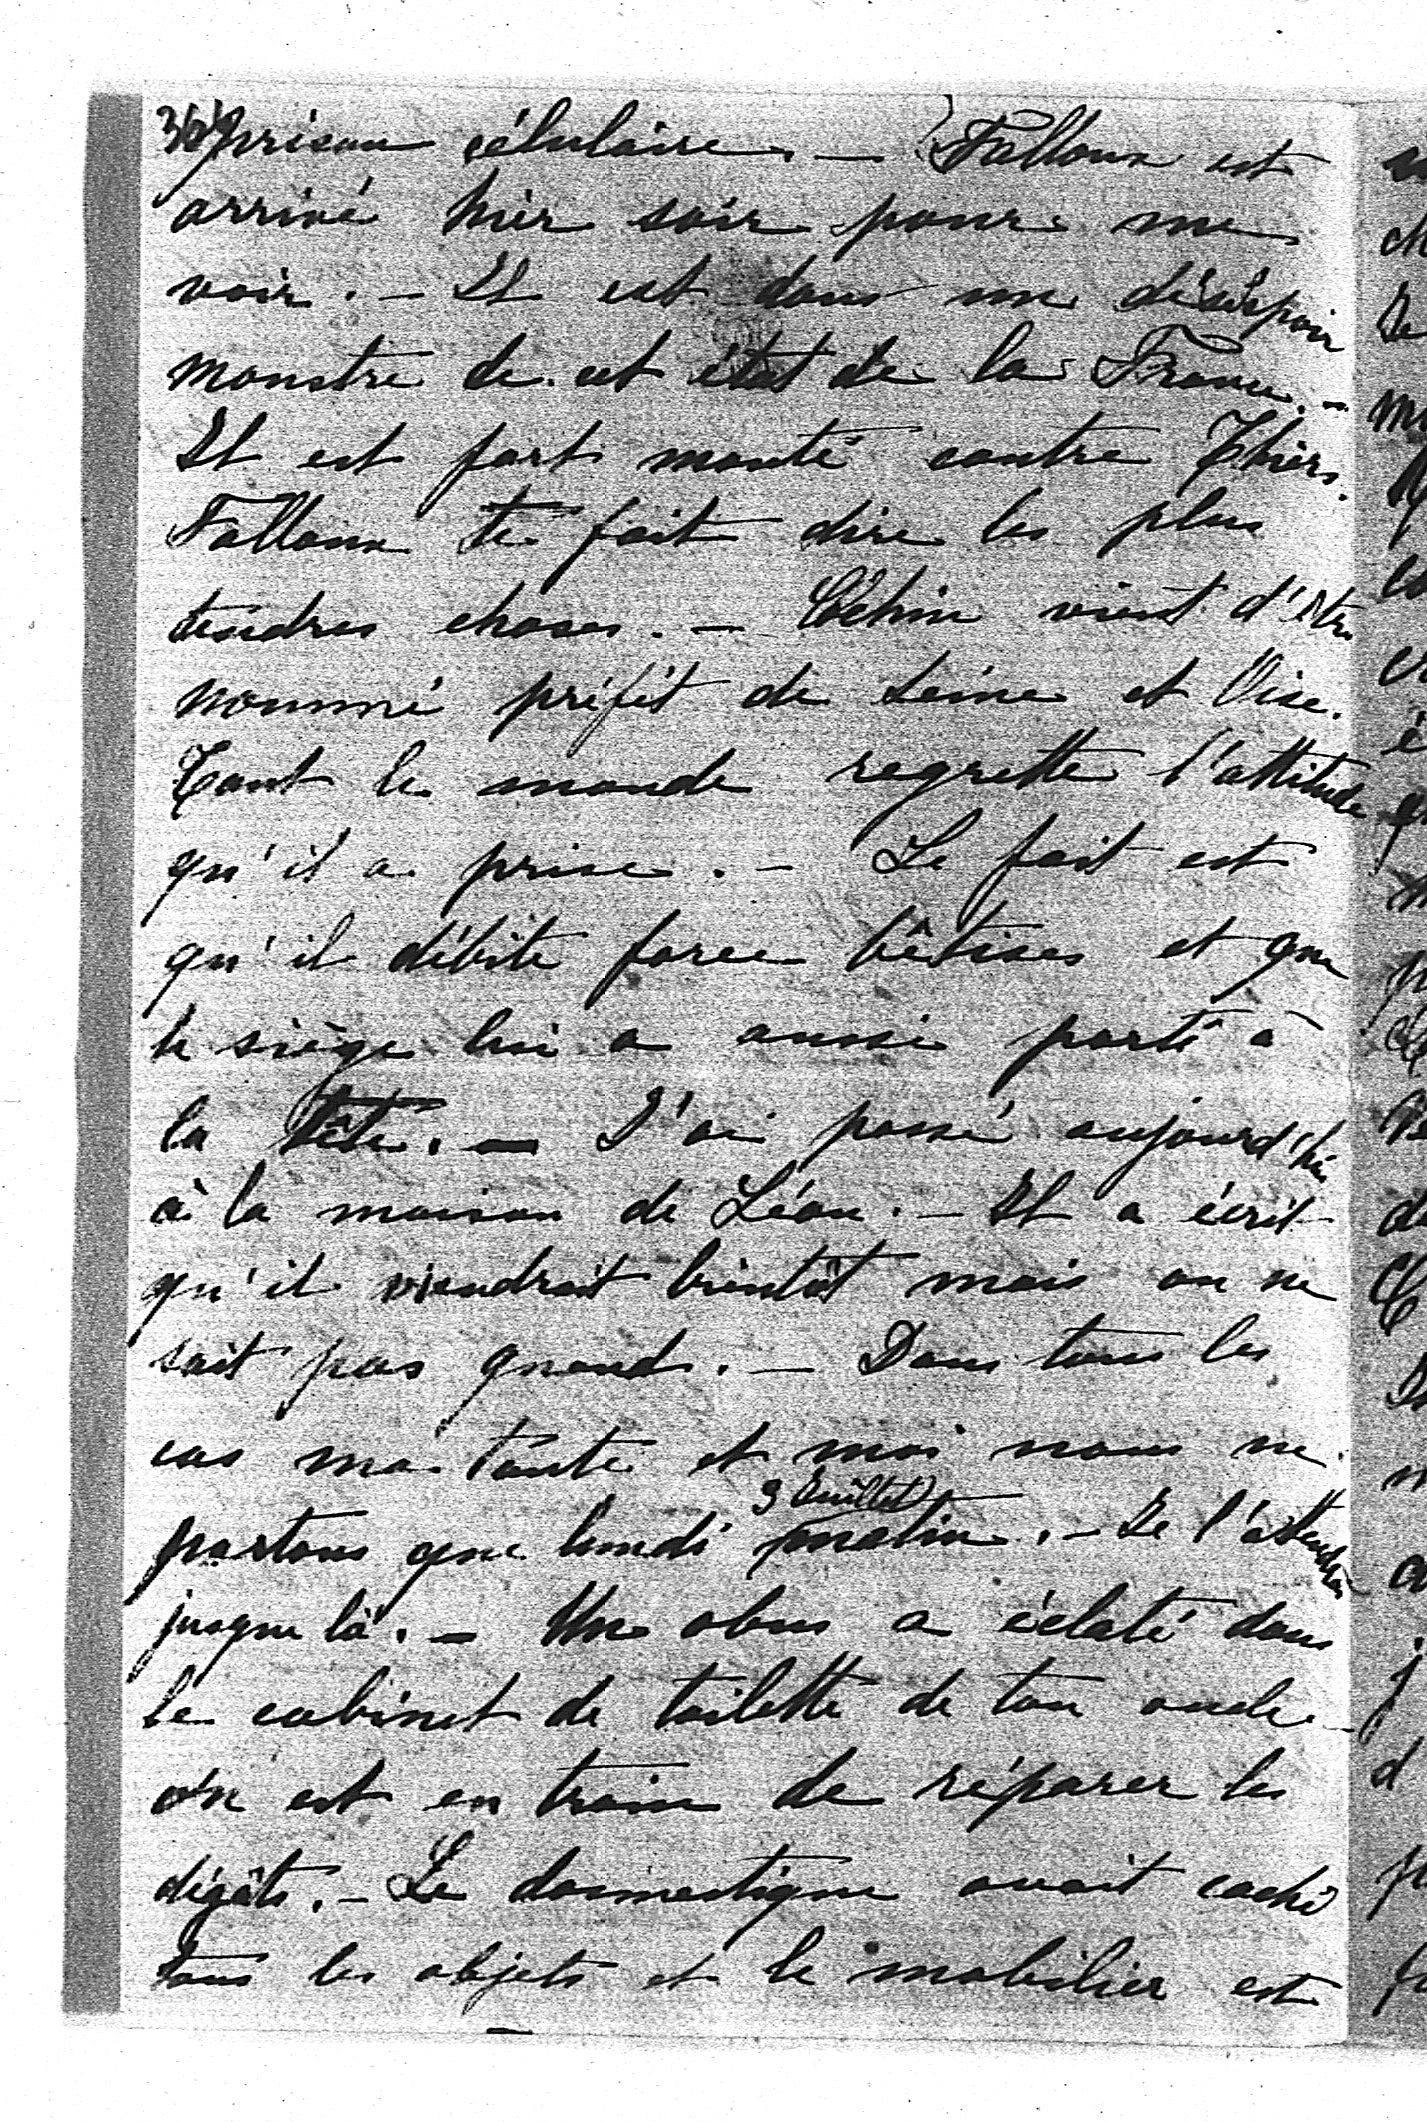 36) prison célulaire. — Falloux est
arrivé hier soir pour me
voir. — Il est dans un désespoir
monstre de cet état de la France. —
Il est fort monté contre Thiers.
Falloux te fait dire les plus
tendres choses. — Cochin vient d'être
nommé préfét de Seine et Oise.
Tout le monde regrette l'attitude
qu'il a prise. — Le fait est
qu'il débite force bêtises et que
le siège lui a aussi porté à
la tête. — J'ai passé aujourd'hui
à la maison de Léon. — Il a écrit
qu'il viendrait bientôt mais on ne
sait pas quand. — Dans tous les
cas ma tante et moi nous ne
3 Juillet
partons que lundi matin. — Je l'attendrai
jusque là. — Un obus a éclaté dans
le cabinet de toilette de ton oncle —
on est en train de réparer les
dégâts. — Le domestique avait caché
tous les objets et le mobilier est